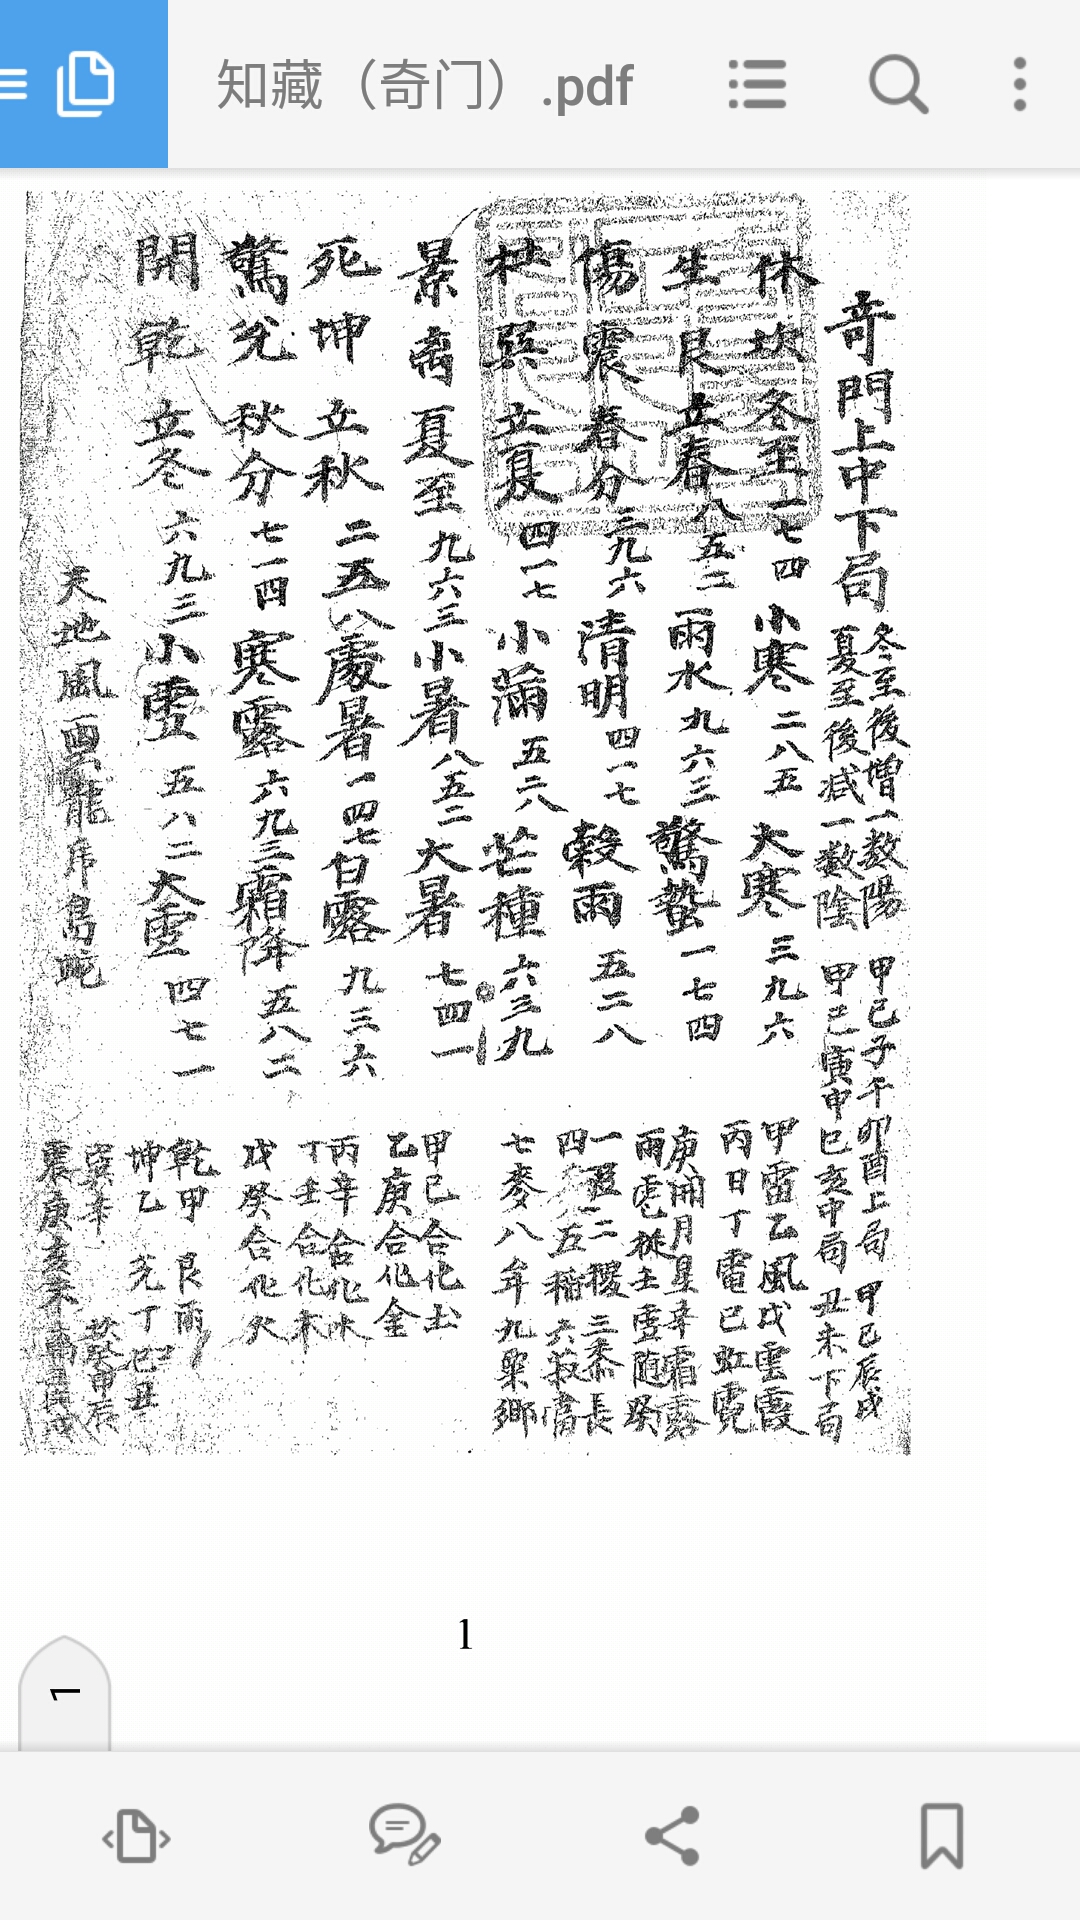 知藏（奇门）.pdf
奇門上中下局
冬至後增一数陽
夏至後减一数陰
甲己子午卯酉上局
甲己寅申巳亥中局
甲己辰戌
丑未下局
休 坎 冬至 一七四 小寒 二八五 大寒 三九六
生 艮 立春 八五二 雨水 九六三 驚蟄 一七四
傷 震 春分 三九六 清明 四一七 穀雨 五二八
杜 巽 立夏 四一七 小滿 五二八 芒種 六三九
景 离 夏至 九六三 小暑 八五二 大暑 七四一
死 坤 立秋 二五八 處暑 一四七 白露 九三六
驚 兊 秋分 七一四 寒露 六九三 霜降 五八二
開 乾 立冬 六九三 小雪 五八二 大雪 四七一
天地風雲龍虎鳥蛇
甲雷乙風戊雲霞
丙日丁電己虹霓
庚開月星辛霜露
一 二稷三黍長
四 五稲六菽
七麥八年九粱鄉
甲己合化土
乙庚合化金
丙辛合化水
丁壬合化木
戊癸合化火
乾甲 艮
坤乙 兊丁巳丑
巽辛
震庚亥未
1
1